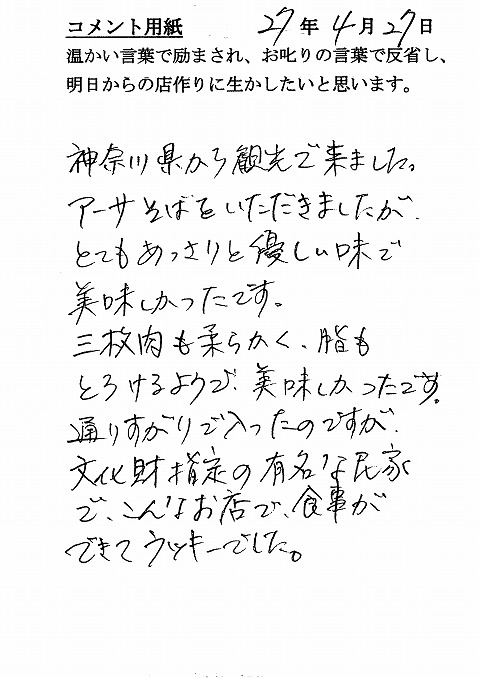 コメント用紙 27年4月27日
温かい言葉で励まされ、お叱りの言葉で反省し、
明日からの店作りに生かしたいと思います。
神奈川県から観光で来ました。
アーサそばをいただきましたが、
とてもあっさりと優しい味で
美味しかったです。
三枚肉も柔らかく、脂も
とろけるようで、美味しかったです。
通りすがりで入ったのですが、
文化財指定の有名な民家
で、こんなお店で、食事が
できてラッキーでした。